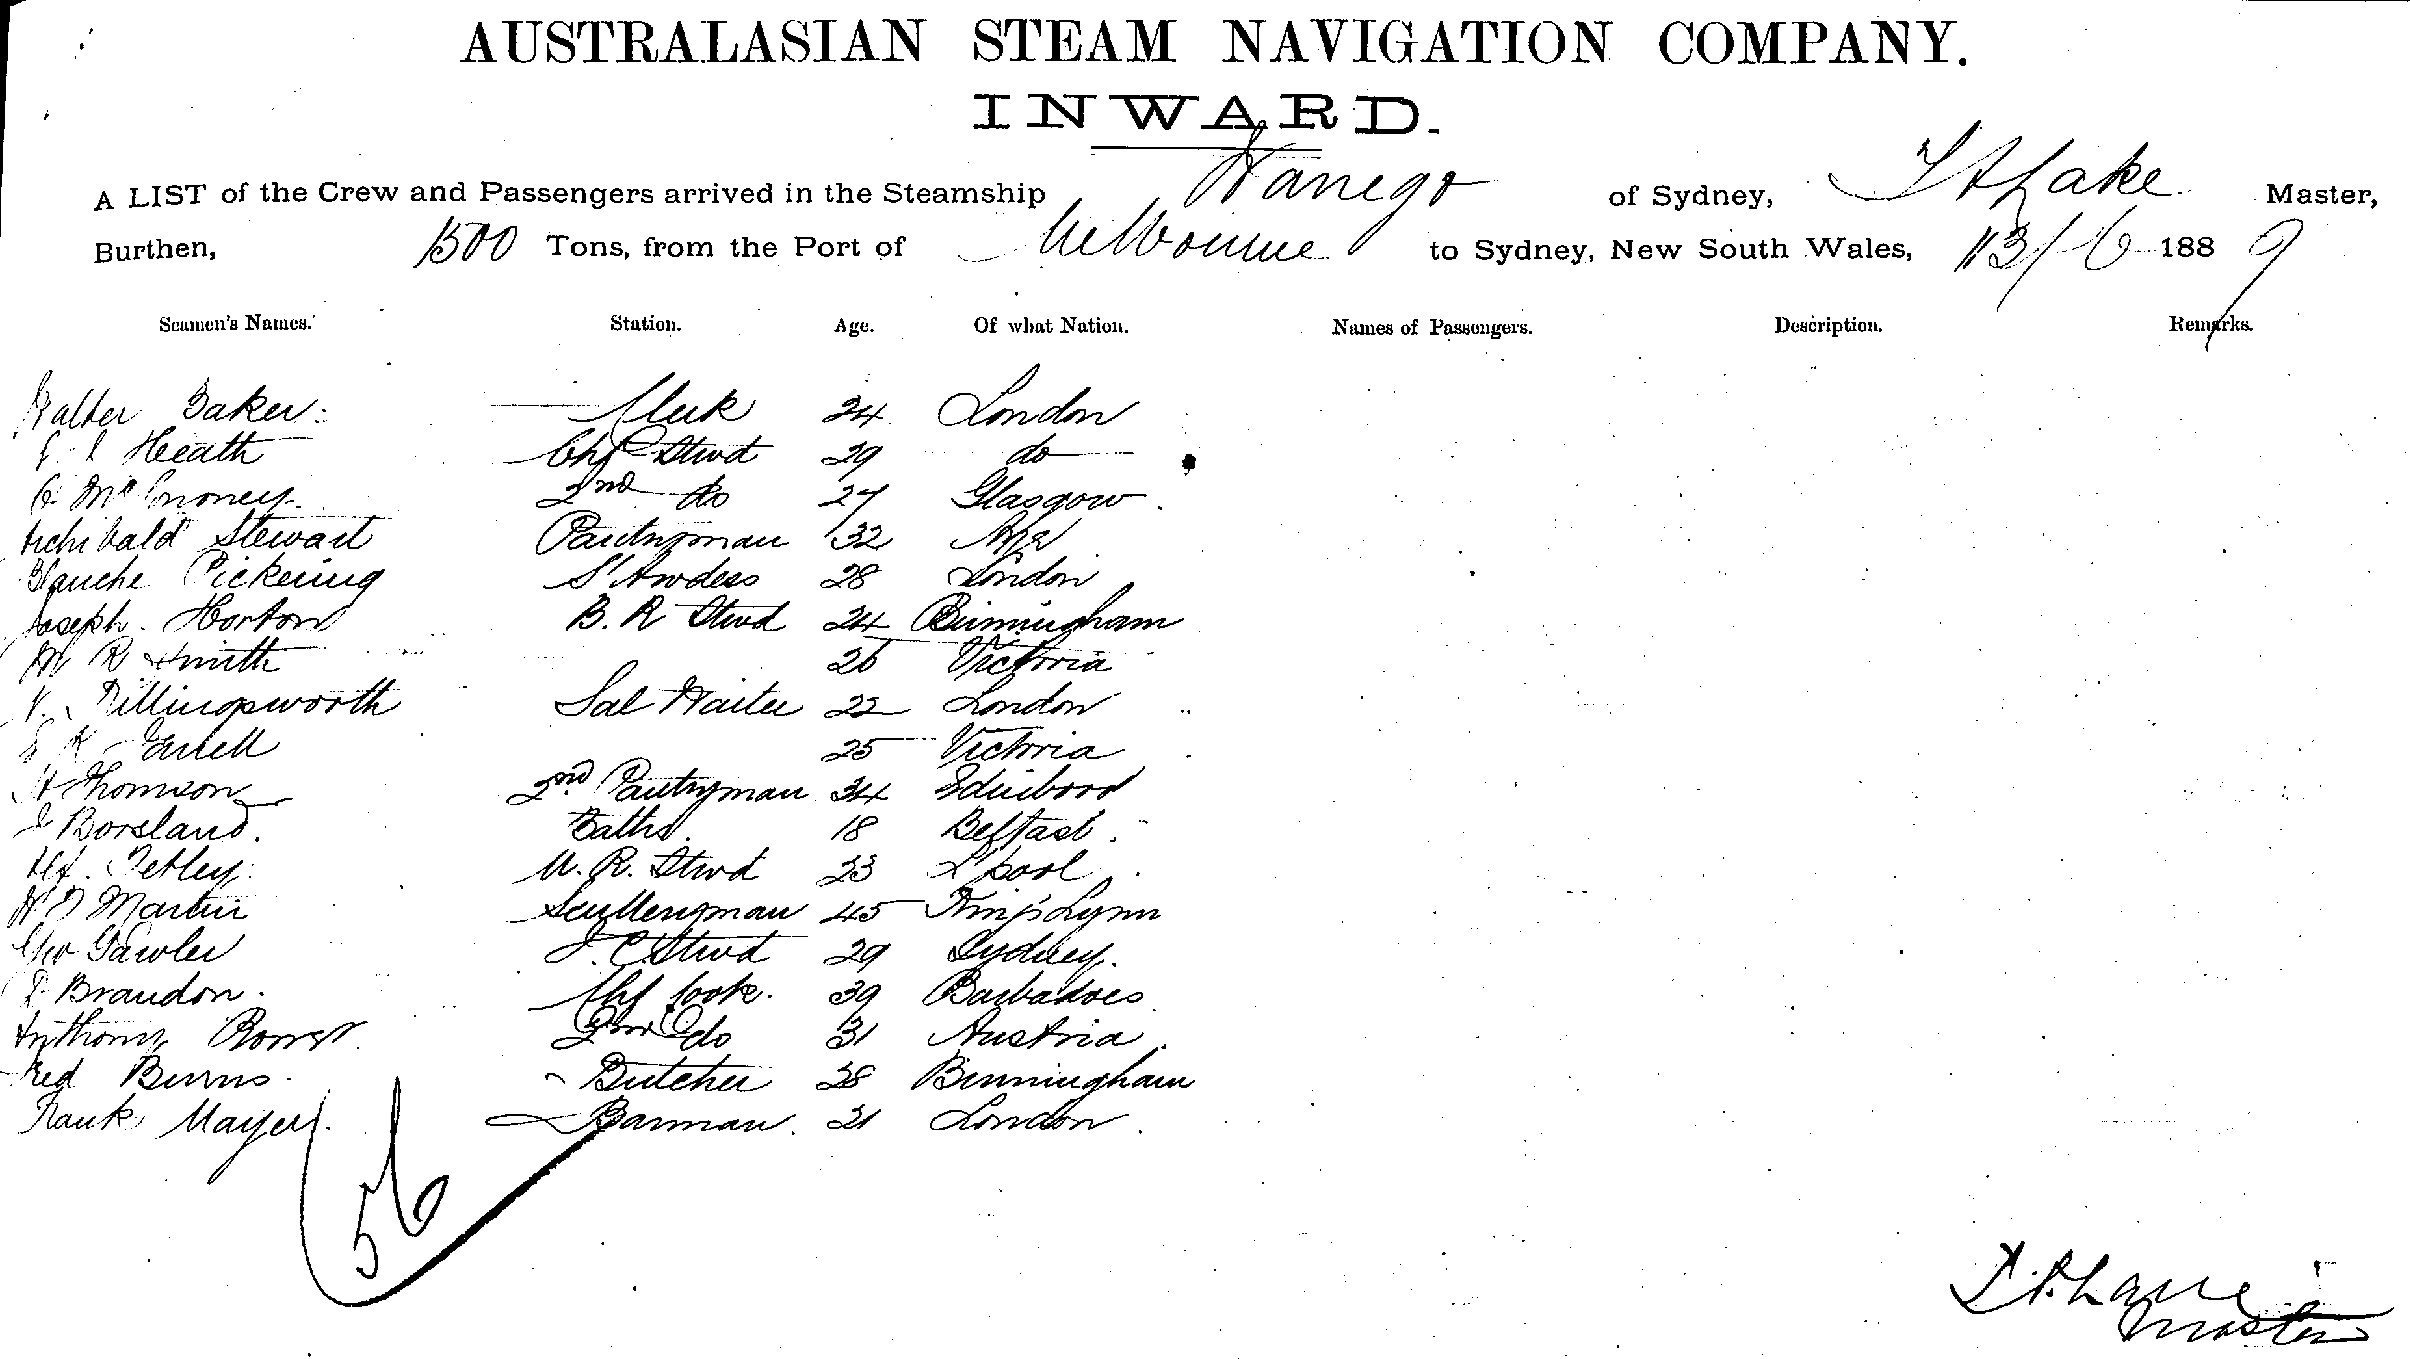 AUSTRALASIAN STEAM NAVIGATION COMPANY.
INWARD.
A LIST of the Crew and Passengers arrived in the Steamship of Sydney, Lake Master,
Burthen, 1500 Tons, from the Port of Melbourne to Sydney, New South Wales, 13/6 1889
Seamen's Names. Station. Age. Of what Nation. Names of Passengers. Description. Remarks.
Walter Baker Clerk 24 London
Heath Chf Stwd 29 do
2nd do 27 Glasgow
Archibald Stewart Pantryman 32
Blanche Pickering St'Awdess 28 London
Joseph Horton B. R Stwd 24 Birmingham
M R Smith 26 Victoria
Sal Waiter 22 London
25 Victoria
Thomson 2nd Pantryman 34
Borsland. Baths 18 Belfast
Tetley R. Stwd 23 L'pool
Martin Sculleryman 45 King's Lynn
Geo Gawler Stwd 29 Sydney.
Brandon. Chf Cook. 39 Barbadoes
Anthony 2nd do 31 Austria
Fred Burns. Butcher 38 Birmingham
Frank Mayer Barman. 21 London
56
Master